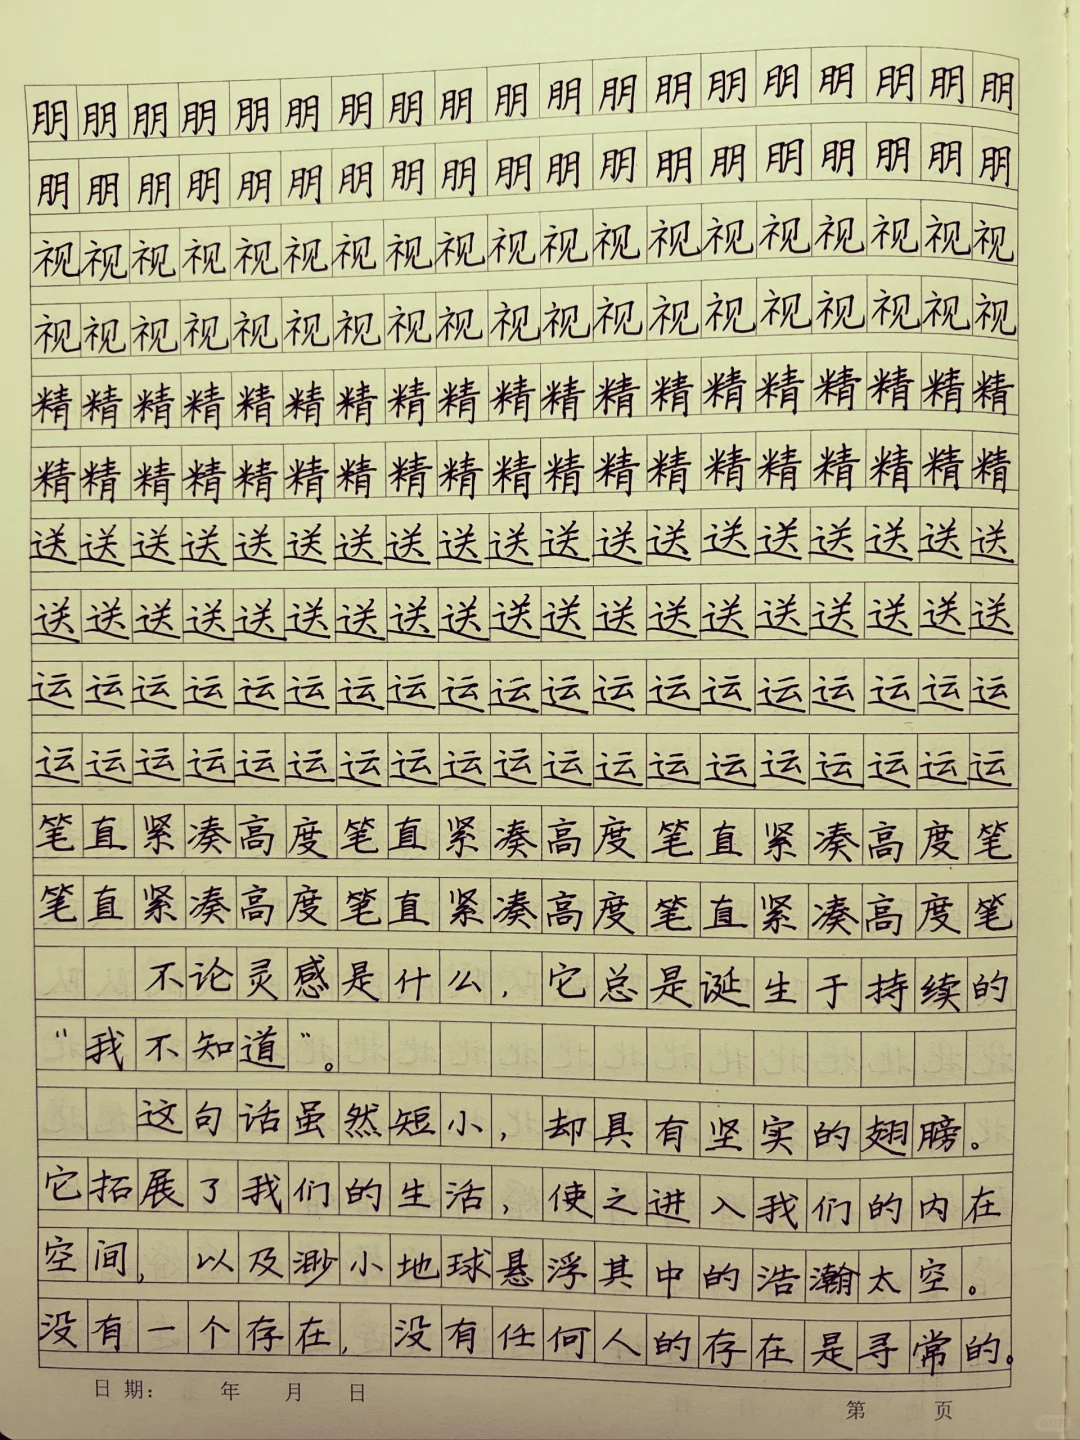 朋朋朋朋朋朋朋朋朋朋朋朋朋朋朋朋朋朋朋
朋朋朋朋朋朋朋朋朋朋朋朋朋朋朋朋朋朋朋
视视视视视视视视视视视视视视视视视视视
视视视视视视视视视视视视视视视视视视视
精精精精精精精精精精精精精精精精精精精
精精精精精精精精精精精精精精精精精精精
送送送送送送送送送送送送送送送送送送送
送送送送送送送送送送送送送送送送送送送
运运运运运运运运运运运运运运运运运运运
运运运运运运运运运运运运运运运运运运运
笔直紧凑高度笔直紧凑高度笔直紧凑高度笔
笔直紧凑高度笔直紧凑高度笔直紧凑高度笔
不论灵感是什么，它总是诞生于持续的
“我不知道”。
这句话虽然短小，却具有坚实的翅膀。
它拓展了我们的生活，使之进入我们的内在
空间，以及渺小地球悬浮其中的浩瀚太空。
没有一个存在，没有任何人的存在是寻常的。
日期： 年 月 日
第 页